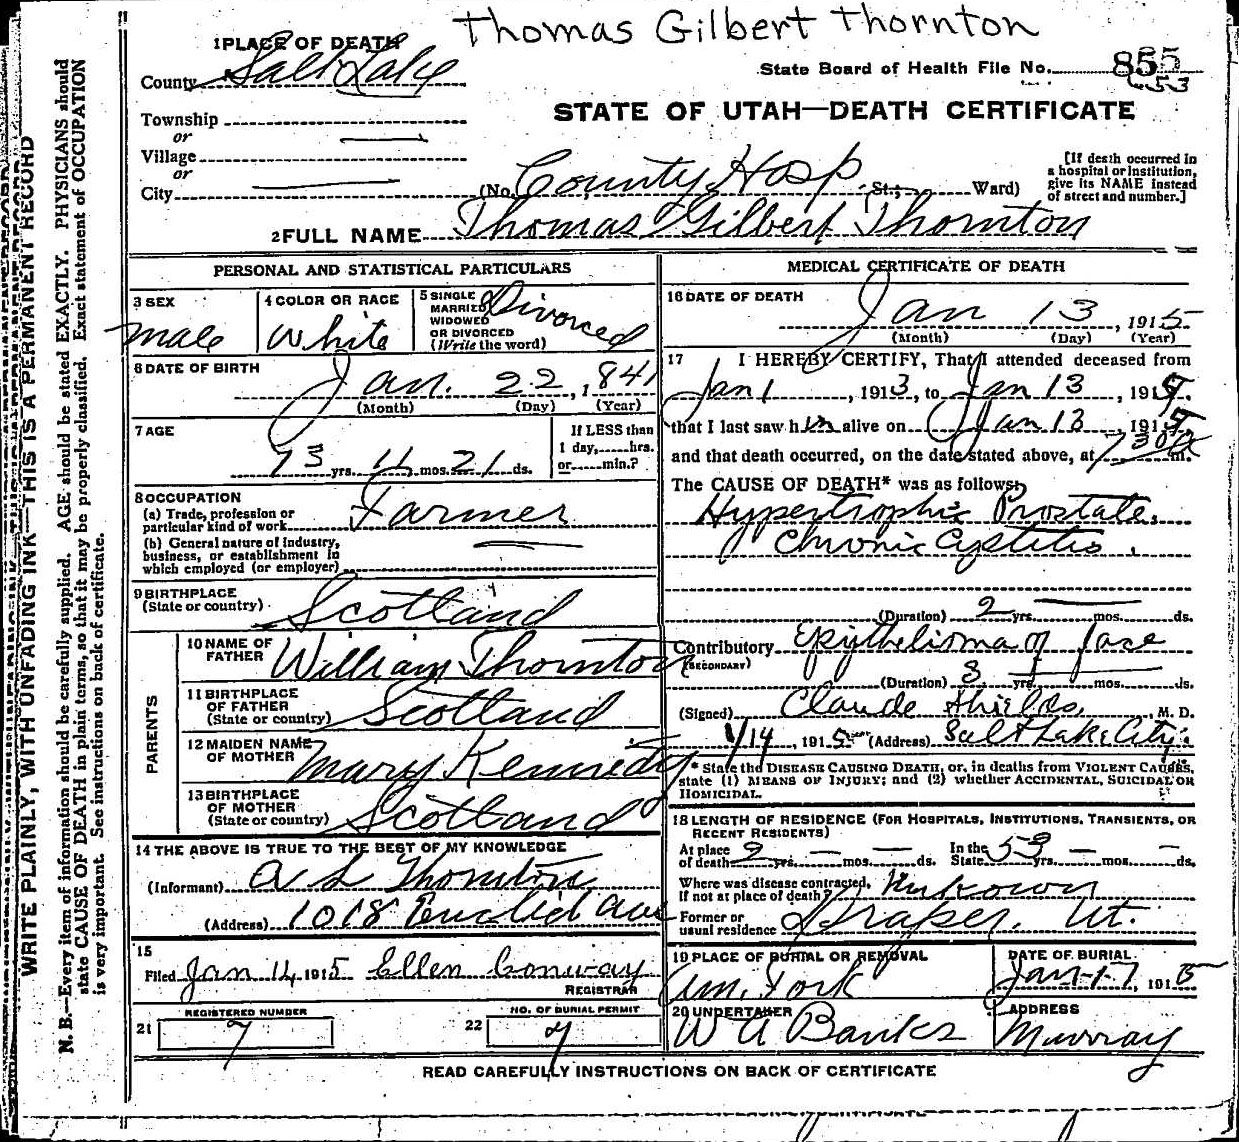 Thomas Gilbert Thornton
1 PLACE OF DEATH
County Salt Lake
State Board of Health File No. 855
53
STATE OF UTAH—DEATH CERTIFICATE
Township
or
Village
or
City
(No. County Hosp St.; Ward)
[If death occurred in
a hospital or institution,
give its NAME instead
of street and number.]
2 FULL NAME Thomas Gilbert Thornton
PERSONAL AND STATISTICAL PARTICULARS
3 SEX
male
4 COLOR OR RACE
White
5 SINGLE
MARRIED
WIDOWED
OR DIVORCED
(Write the word)
Divorced
6 DATE OF BIRTH
Jan. 22, 1841
(Month) (Day) (Year)
7 AGE
73 yrs. 11 mos. 21 ds.
If LESS than
1 day, hrs.
or min.?
8 OCCUPATION
(a) Trade, profession or
particular kind of work Farmer
(b) General nature of industry,
business, or establishment in
which employed (or employer)
9 BIRTHPLACE
(State or country) Scotland
PARENTS
10 NAME OF
FATHER William Thornton
11 BIRTHPLACE
OF FATHER
(State or country) Scotland
12 MAIDEN NAME
OF MOTHER Mary Kennedy
13 BIRTHPLACE
OF MOTHER
(State or country) Scotland
14 THE ABOVE IS TRUE TO THE BEST OF MY KNOWLEDGE
(Informant) A L Thornton
(Address) 1018 Euclid Ave
15
Filed Jan 14 1915 Ellen Conway
REGISTRAR
REGISTERED NUMBER
21 7
NO. OF BURIAL PERMIT
22 7
MEDICAL CERTIFICATE OF DEATH
16 DATE OF DEATH
Jan 13, 1915
(Month) (Day) (Year)
17 I HEREBY CERTIFY, That I attended deceased from
Jan 1, 1913, to Jan 13, 1915,
that I last saw him alive on Jan 13, 1915,
and that death occurred, on the date stated above, at 730a m.
The CAUSE OF DEATH* was as follows:
Hypertrophic Prostate.
Chronic Cystitis.
(Duration) 2 yrs. mos. ds.
Contributory Epythelioma of face
(SECONDARY)
(Duration) 3 yrs. mos. ds.
(Signed) Claude Shields, M. D.
1/14, 1915 (Address) Salt Lake City.
* State the DISEASE CAUSING DEATH, or, in deaths from VIOLENT CAUSES,
state (1) MEANS OF INJURY; and (2) whether ACCIDENTAL, SUICIDAL OR
HOMICIDAL.
18 LENGTH OF RESIDENCE (FOR HOSPITALS, INSTITUTIONS, TRANSIENTS, OR
RECENT RESIDENTS)
At place
of death 2 yrs. mos. ds.
In the
State 53 yrs. mos. ds.
Where was disease contracted,
if not at place of death? Unkown
Former or
usual residence Draper, Ut.
19 PLACE OF BURIAL OR REMOVAL
Am. Fork
DATE OF BURIAL
Jan-17, 1915
20 UNDERTAKER
W A Banks
ADDRESS
Murray
READ CAREFULLY INSTRUCTIONS ON BACK OF CERTIFICATE
WRITE PLAINLY, WITH UNFADING INK—THIS IS A PERMANENT RECORD
N. B.—Every item of information should be carefully supplied. AGE should be stated EXACTLY. PHYSICIANS should
state CAUSE OF DEATH in plain terms, so that it may be properly classified. Exact statement of OCCUPATION
is very important. See instructions on back of certificate.